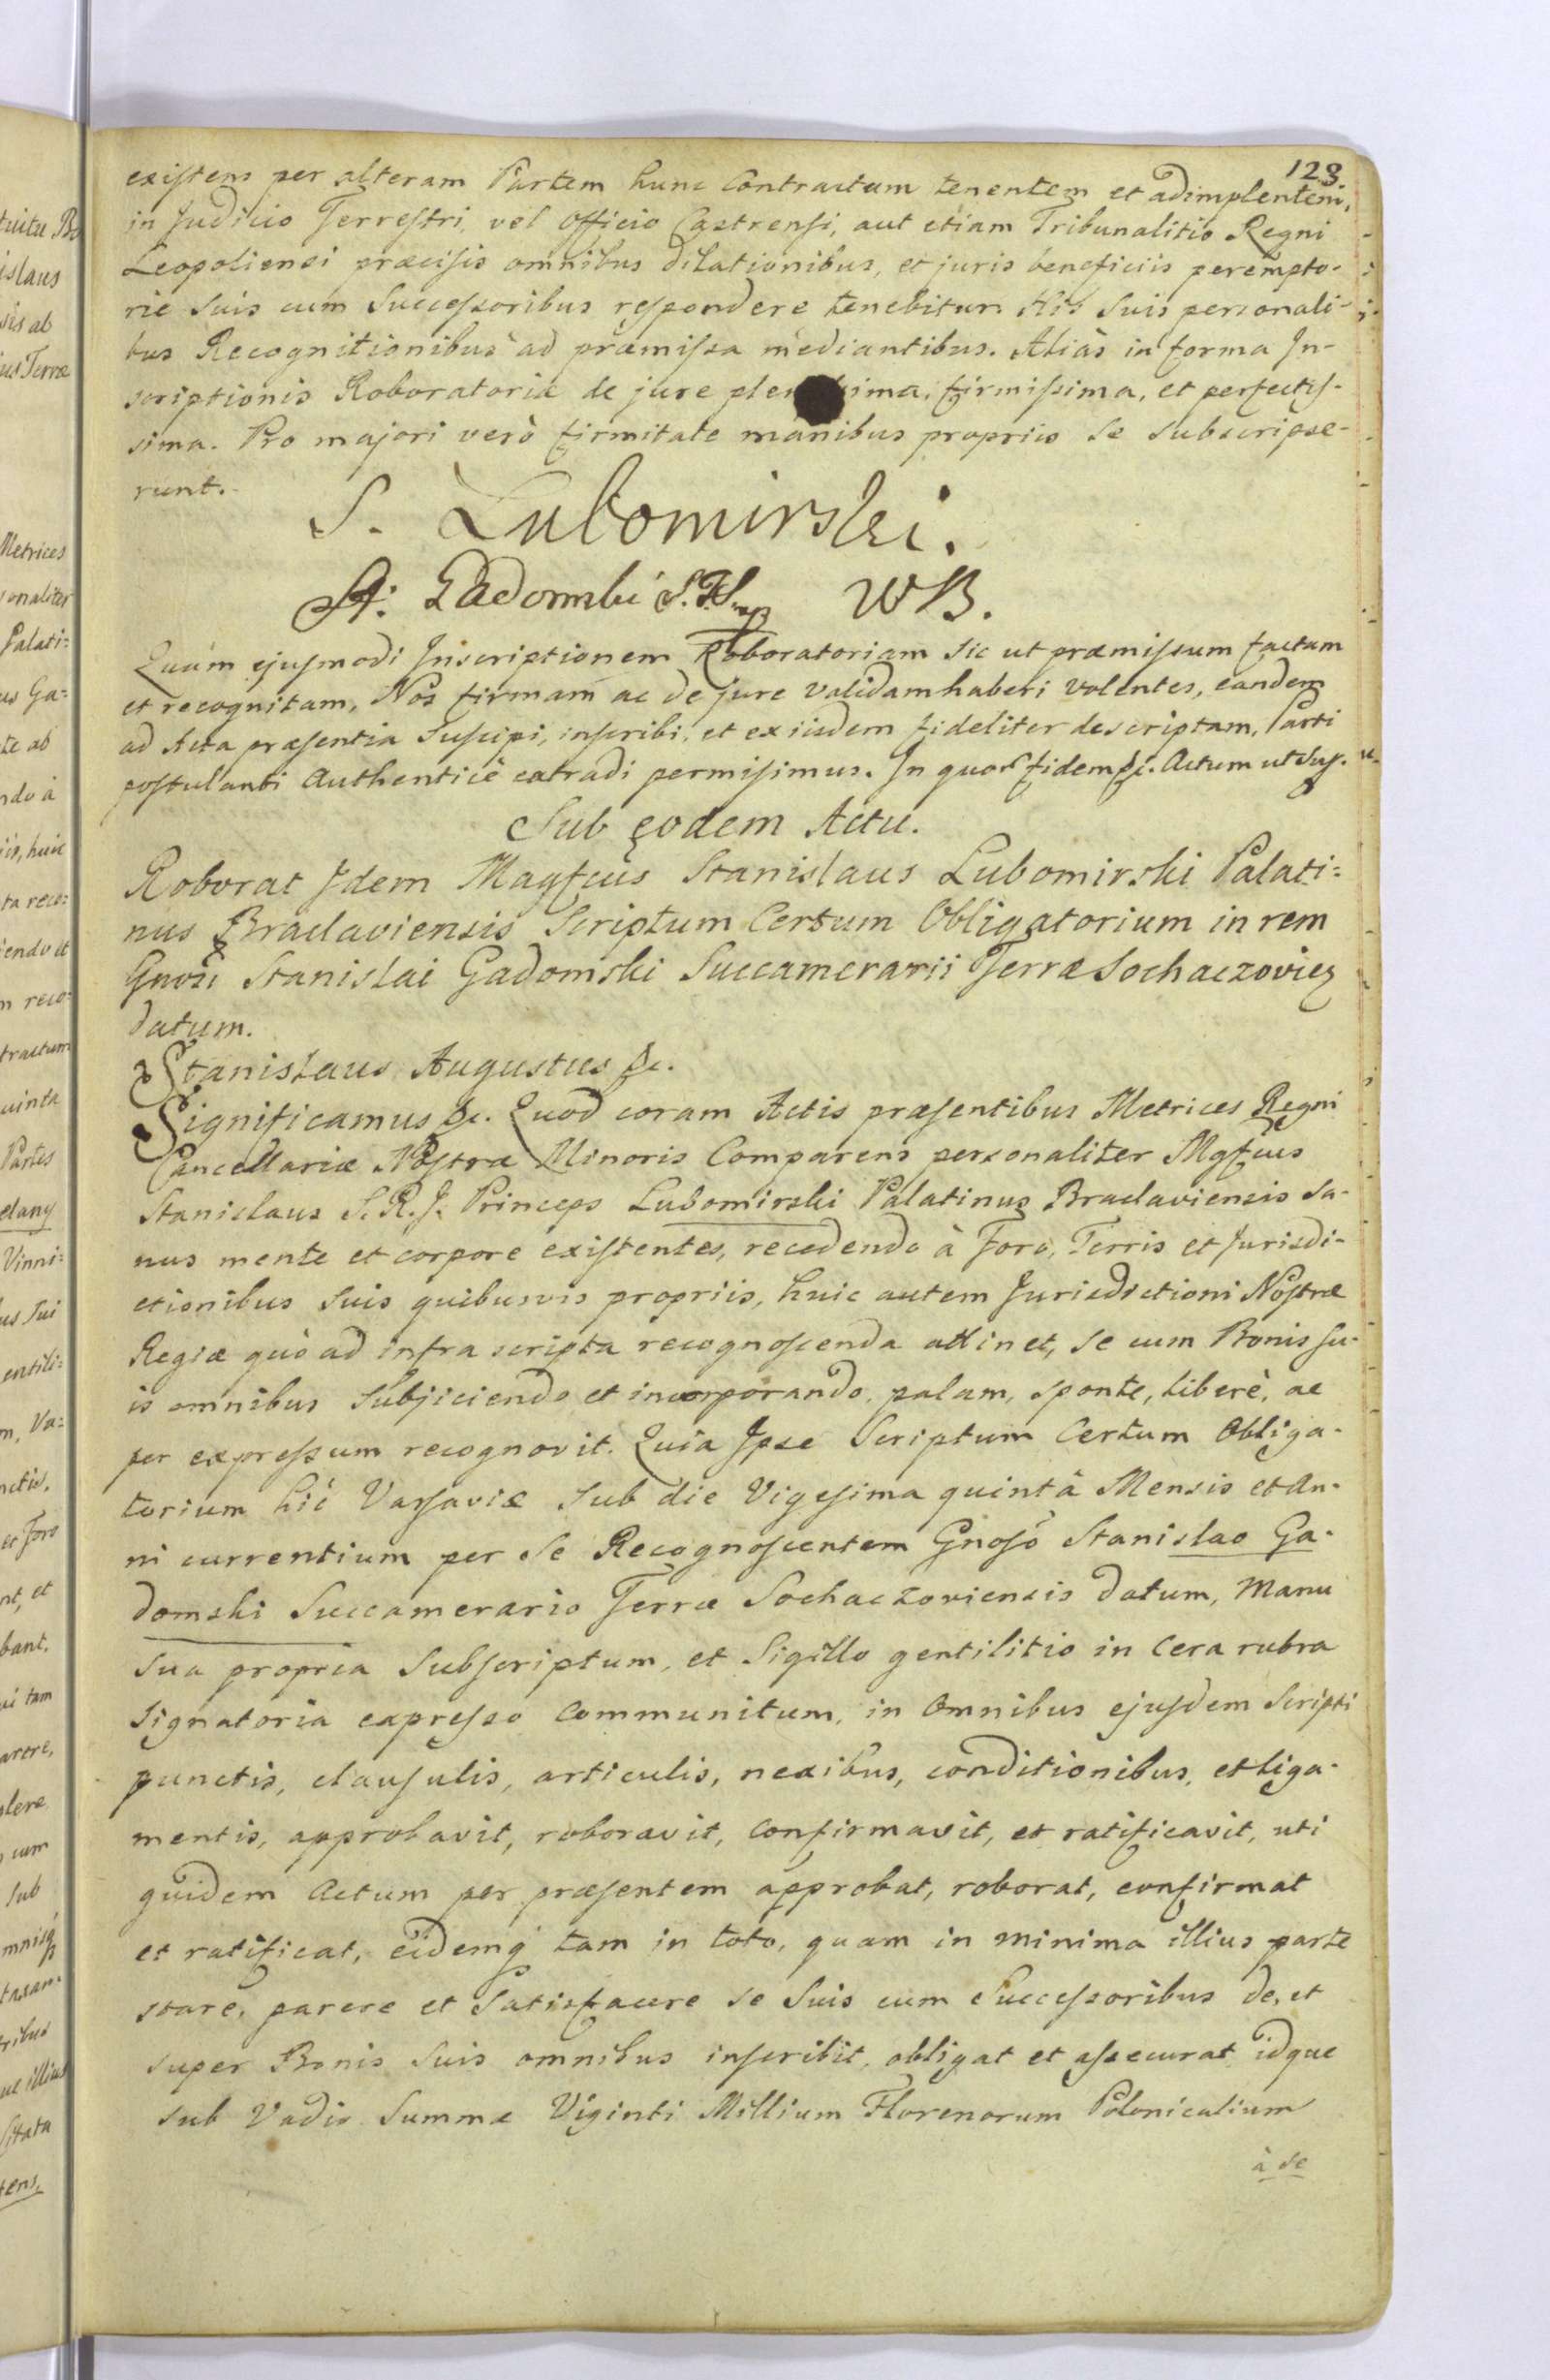 123
existens per alteram Partem hunc Contractum tenentem et adimplentem,
in Judicio Terrestri, vel Officio Castrensi, aut etiam Tribunalitio Regni
Leopoliensi præcisis omnibus dilationibus, et juris beneficiis perempto-
rie suis cum Successoribus respondere tenebitur. His suis personali-
bus Recognitionibus ad præmissa mediantibus. Aliàs in forma In-
scriptionis Roboratoriæ de jure plenissima, firmissima, et perfectis-
sima. Pro majori verò firmitate manibus propriis se subscripse-
runt.
S. Lubomirski.
WB.
Quam ejusmodi Inscriptionem Roboratoriam sic ut præmissum factam
et recognitam, Nos firmam ac de jure validam haberi volentes, eandem
ad Acta præsentia suscipi, inscribi, et ex iisdem fideliter descriptam, Parti
postulanti authenticè extradi permisimus. In quor fidem &c. Actum ut sup.
Sub eodem Actu.
Roborat Idem Magfcus Stanislaus Lubomirski Palati=
nus Braclaviensis Scriptum Certum Obligatorium in rem
Gnosi Stanislai Gadomski Succamerarii Terræ Sochaczovien
datum.
Stanislaus Augustus &c.
Significamus &c. Quod coram Actis præsentibus Metrices Regni
Cancellariæ Nostræ Minoris Comparens personaliter Mgfcus
Stanislaus S. R. J. Princeps Lubomirski Palatinus Braclaviensis sa-
nus mente et corpore existentes, recedendo à Foro, Terris et Jurisdi-
ctionibus suis quibusvis propriis, huic autem Jurisdictioni Nostræ
Regiæ quò ad infra scripta recognoscenda attinet, se cum Bonis su-
is omnibus subjiciendo et incorporando, palam, sponte, liberè, ac
per expressum recognovit. Quia Ipse Scriptum Certum Obliga-
torium hic Varsaviæ sub die Vigesima quintâ Mensis et An-
ni currentium per se Recognoscentem Gnoso Stanislao Ga-
domski Succamerario Terræ Sochaczoviensis datum, manu
sua propria subscriptum, et Sigillo gentilitio in cera rubra
signatoria expresso communitum, in omnibus ejusdem scripti
punctis, clausulis, articulis, nexibus, conditionibus, et liga-
mentis, approbavit, roboravit, confirmavit, et ratificavit, uti
quidem actum per præsentem approbat, roborat, confirmat
et ratificat, eidemq tam in toto, quam in minima illius parte
stare, parere et satisfacere se suis cum Successoribus de, et
super Bonis suis omnibus inscribit, obligat et assecurat idque
sub Vadio Summæ Viginti Millium Florenorum Polonicalium
à se